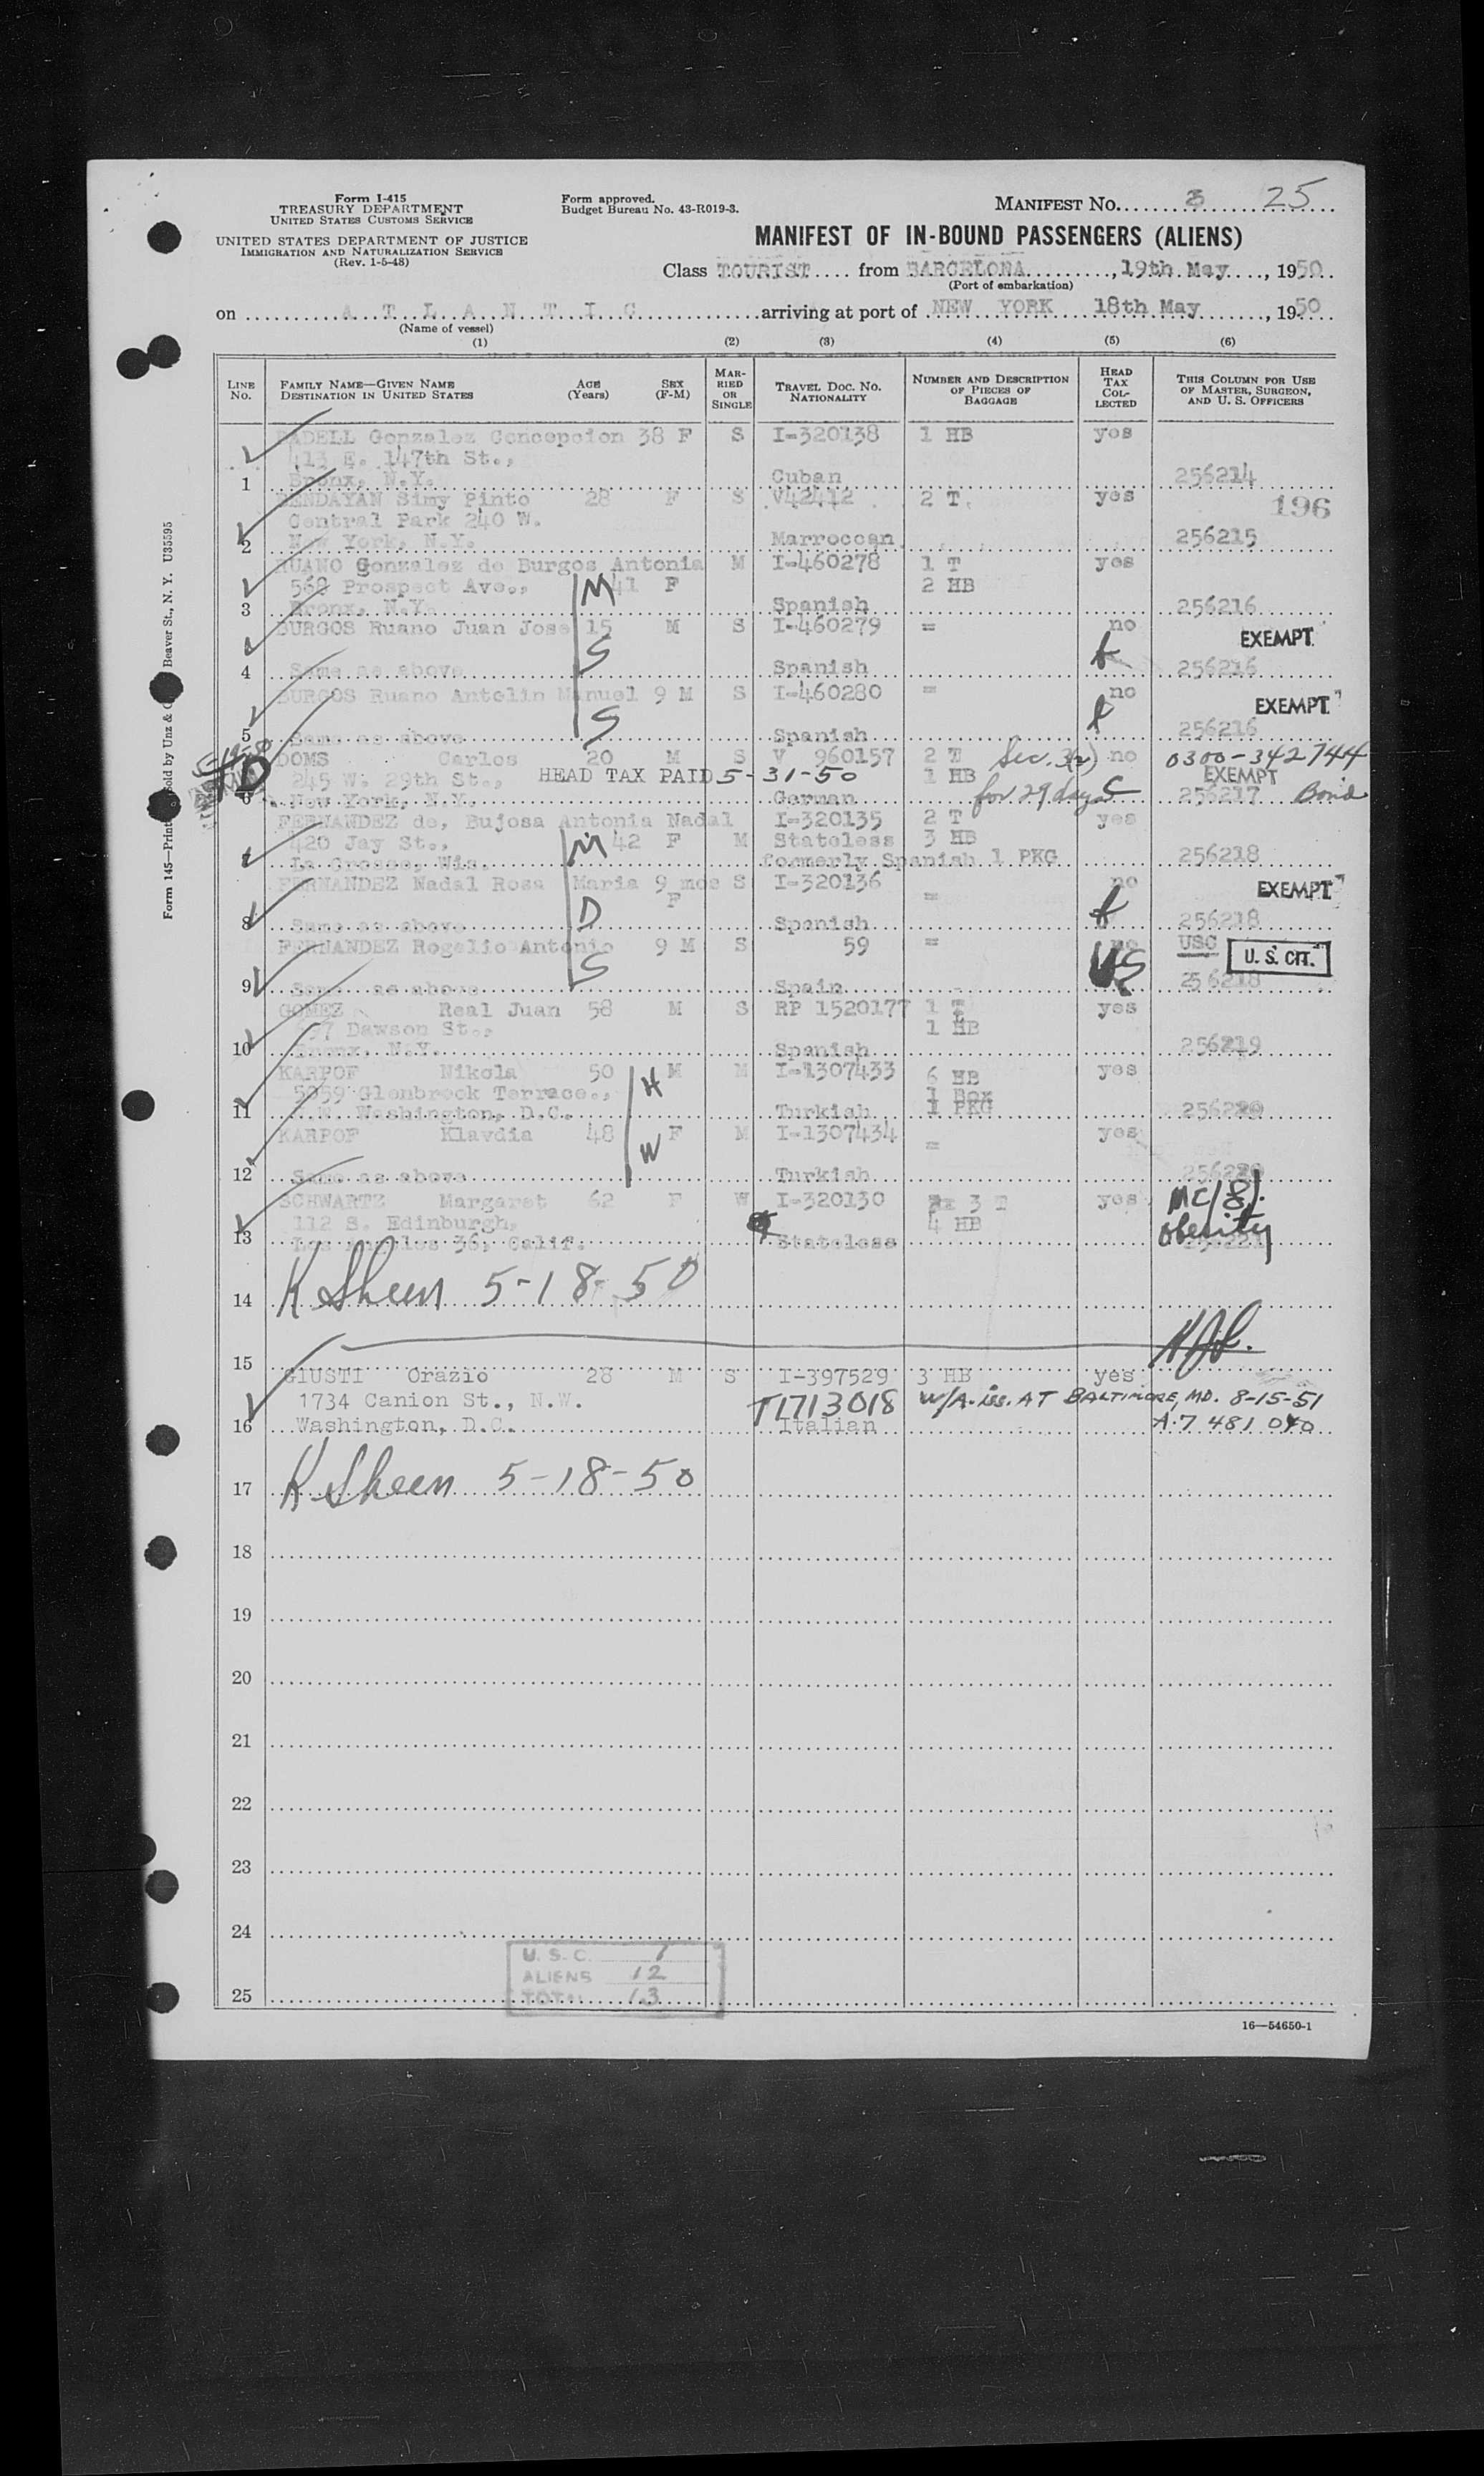 Form I-415
TREASURY DEPARTMENT
UNITED STATES CUSTOMS SERVICE
UNITED STATES DEPARTMENT OF JUSTICE
IMMIGRATION AND NATURALIZATION SERVICE
(Rev. 1-5-48)
Form approved.
Budget Bureau No. 43-R019-3.
MANIFEST No. 3 25
MANIFEST OF IN-BOUND PASSENGERS (ALIENS)
Class TOURIST from BARCELONA, 19th May, 1950
(Port of embarkation)
on A T L A N T I C arriving at port of NEW YORK 18th May, 1950
(Name of vessel)
(1) (2) (3) (4) (5) (6)
LINE No. FAMILY NAME—GIVEN NAME DESTINATION IN UNITED STATES AGE (Years) SEX (F-M) MARRIED OR SINGLE TRAVEL DOC. NO. NATIONALITY NUMBER AND DESCRIPTION OF PIECES OF BAGGAGE HEAD TAX COLLECTED THIS COLUMN FOR USE OF MASTER, SURGEON, AND U. S. OFFICERS
BADELL Gonzalez Concepcion 38 F S I-320138 1 HB yes
413 E. 147th St.,
1 Bronx, N.Y. Cuban 256214
BENDAYAN Simy Pinto 28 F S V42412 2 T. yes 196
Central Park 240 W.
2 New York, N.Y. Marroccan 256215
RUANO Gonzalez de Burgos Antonia M I-460278 1 T yes
568 Prospect Ave., M 41 F 2 HB
3 Bronx, N.Y. Spanish 256216
BURGOS Ruano Juan Jose 15 M S I-460279 = no EXEMPT
S
4 Same as above Spanish 256216
BURGOS Ruano Antolin Manuel 9 M S I-460280 = no EXEMPT
S
5 Same as above Spanish 256216
DOMS Carlos 20 M S V 960157 2 T Sec. 3(2) no 0300-342744
245 W. 29th St., HEAD TAX PAID 5-31-50 1 HB EXEMPT
6 New York, N.Y. German for 29 days 256217 Bond
FERNANDEZ de, Bujosa Antonia Nadal I-320135 2 T yes
420 Jay St., M 42 F M Stateless 3 HB
7 La Crosse, Wis. formerly Spanish 1 PKG 256218
FERNANDEZ Nadal Rosa Maria 9 mos S I-320136 = no EXEMPT
D F
8 Same as above Spanish 256218
FERNANDEZ Rogelio Antonio 9 M S 59 = no USC U. S. CIT.
S US
9 Same as above Spain 256218
GOMEZ Real Juan 58 M S RP 1520177 1 T yes
Dawson St., 1 HB
10 Bronx, N.Y. Spanish 256219
KARPOF Nikola 50 M M I-1307433 6 HB yes
5059 Glenbrook Terrace., H 1 Box
11 N.W. Washington, D.C. Turkish 1 PKG 256220
KARPOF Klavdia 48 F M I-1307434 = yes
W
12 Same as above Turkish 256220
SCHWARTZ Margaret 62 F W I-320130 3 T yes MC/8).
112 S. Edinburgh, 4 HB obesity
13 Los Angeles 36, Calif. Stateless 256221
14 K Sheen 5-18-50
15
GIUSTI Orazio 28 M S I-397529 3 HB yes
1734 Canion St., N.W. T1713018 W/A iss. AT BALTIMORE, MD. 8-15-51
16 Washington, D.C. Italian A-7 481 040
17 K Sheen 5-18-50
18
19
20
21
22
23
24
25
U. S. C. 1
ALIENS 12
TOTAL 13
16—54650-1
Form 145—Printed Sold by Unz & Beaver St., N. Y. U35595